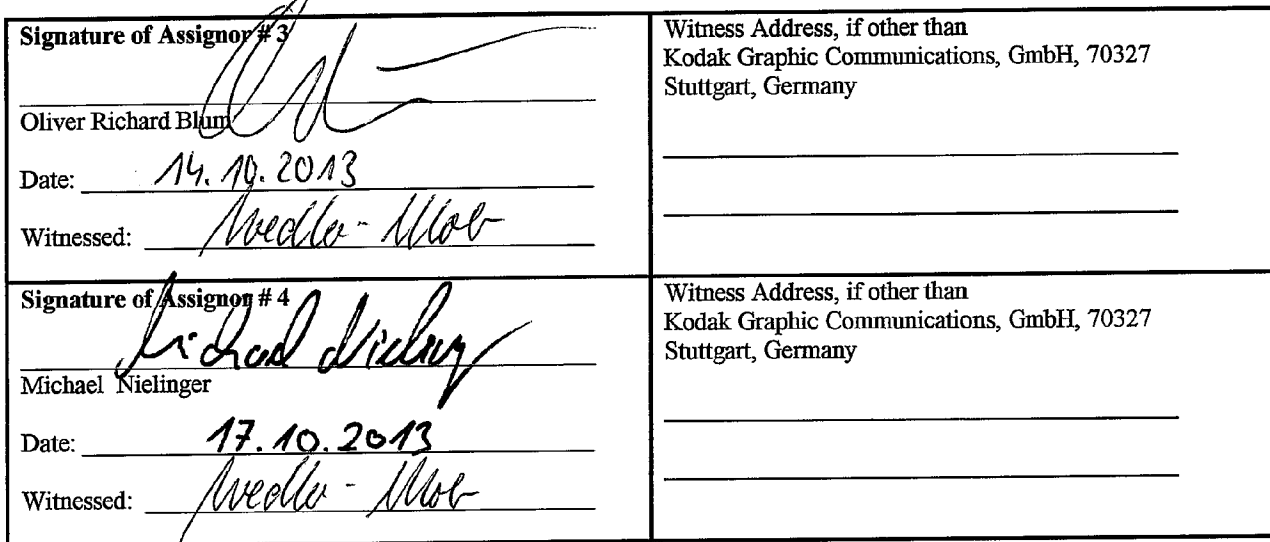 Signature of Assignor # 3
Oliver Richard Blum
Date: 14.10.2013
Witnessed:
Witness Address, if other than
Kodak Graphic Communications, GmbH, 70327
Stuttgart, Germany
Signature of Assignor # 4
Michael Nielinger
Michael Nielinger
Date: 17.10.2013
Witnessed:
Witness Address, if other than
Kodak Graphic Communications, GmbH, 70327
Stuttgart, Germany